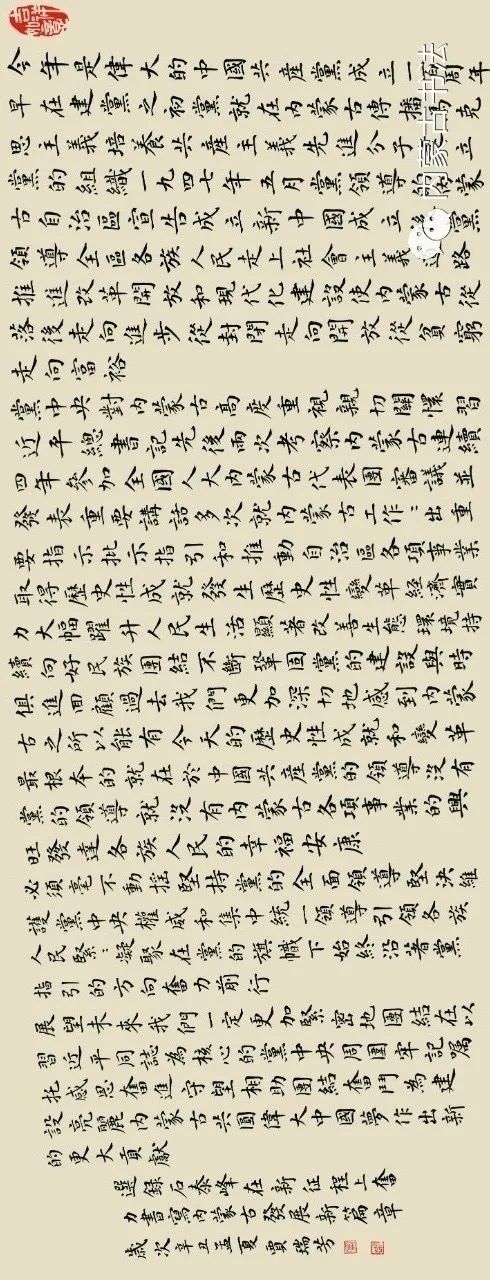 今年是偉大的中國共產黨成立一周年
早在建黨之初黨就在內蒙古傳播馬克
思主義培養共產主義先進分子立
黨的組織一九四七年五月黨領導的蒙
古自治區宣告成立新中國成立後黨
領導全區各族人民走上社會主義道路
推進改革開放和現代化建設使內蒙古從
落後走向進步從封閉走向開放從貧窮
走向富裕
黨中央對內蒙古高度重視親切關懷習
近平總書記先後兩次考察內蒙古連續
四年參加全國人大內蒙古代表團審議並
發表重要講話多次就內蒙古工作出重
要指示批示指引和推動自治區各項事業
取得歷史性成就發生歷史性變革經濟實
力大幅躍升人民生活顯著改善生態環境持
續向好民族團結不斷鞏固黨的建設與時
俱進回顧過去我們更加深切地感到內蒙
古之所以能有今天的歷史性成就和變革
最根本的就在於中國共產黨的領導沒有
黨的領導就沒有內蒙古各項事業的興
旺發達各族人民的幸福安康
必須毫不動搖堅持黨的全面領導堅決維
護黨中央權威和集中統一領導引領各族
人民緊緊凝聚在黨的旗幟下始終沿著黨
指引的方向奮力前行
展望未來我們一定更加緊密地團結在以
習近平同誌為核心的黨中央周圍牢記囑
托感恩奮進守望相助團結奮鬥為建
設亮麗內蒙古共圓偉大中國夢作出新
的更大貢獻
選錄石泰峰在新征程上奮
力書寫內蒙古發展新篇章
歲次辛丑孟夏賈瑞芳
内蒙古书法